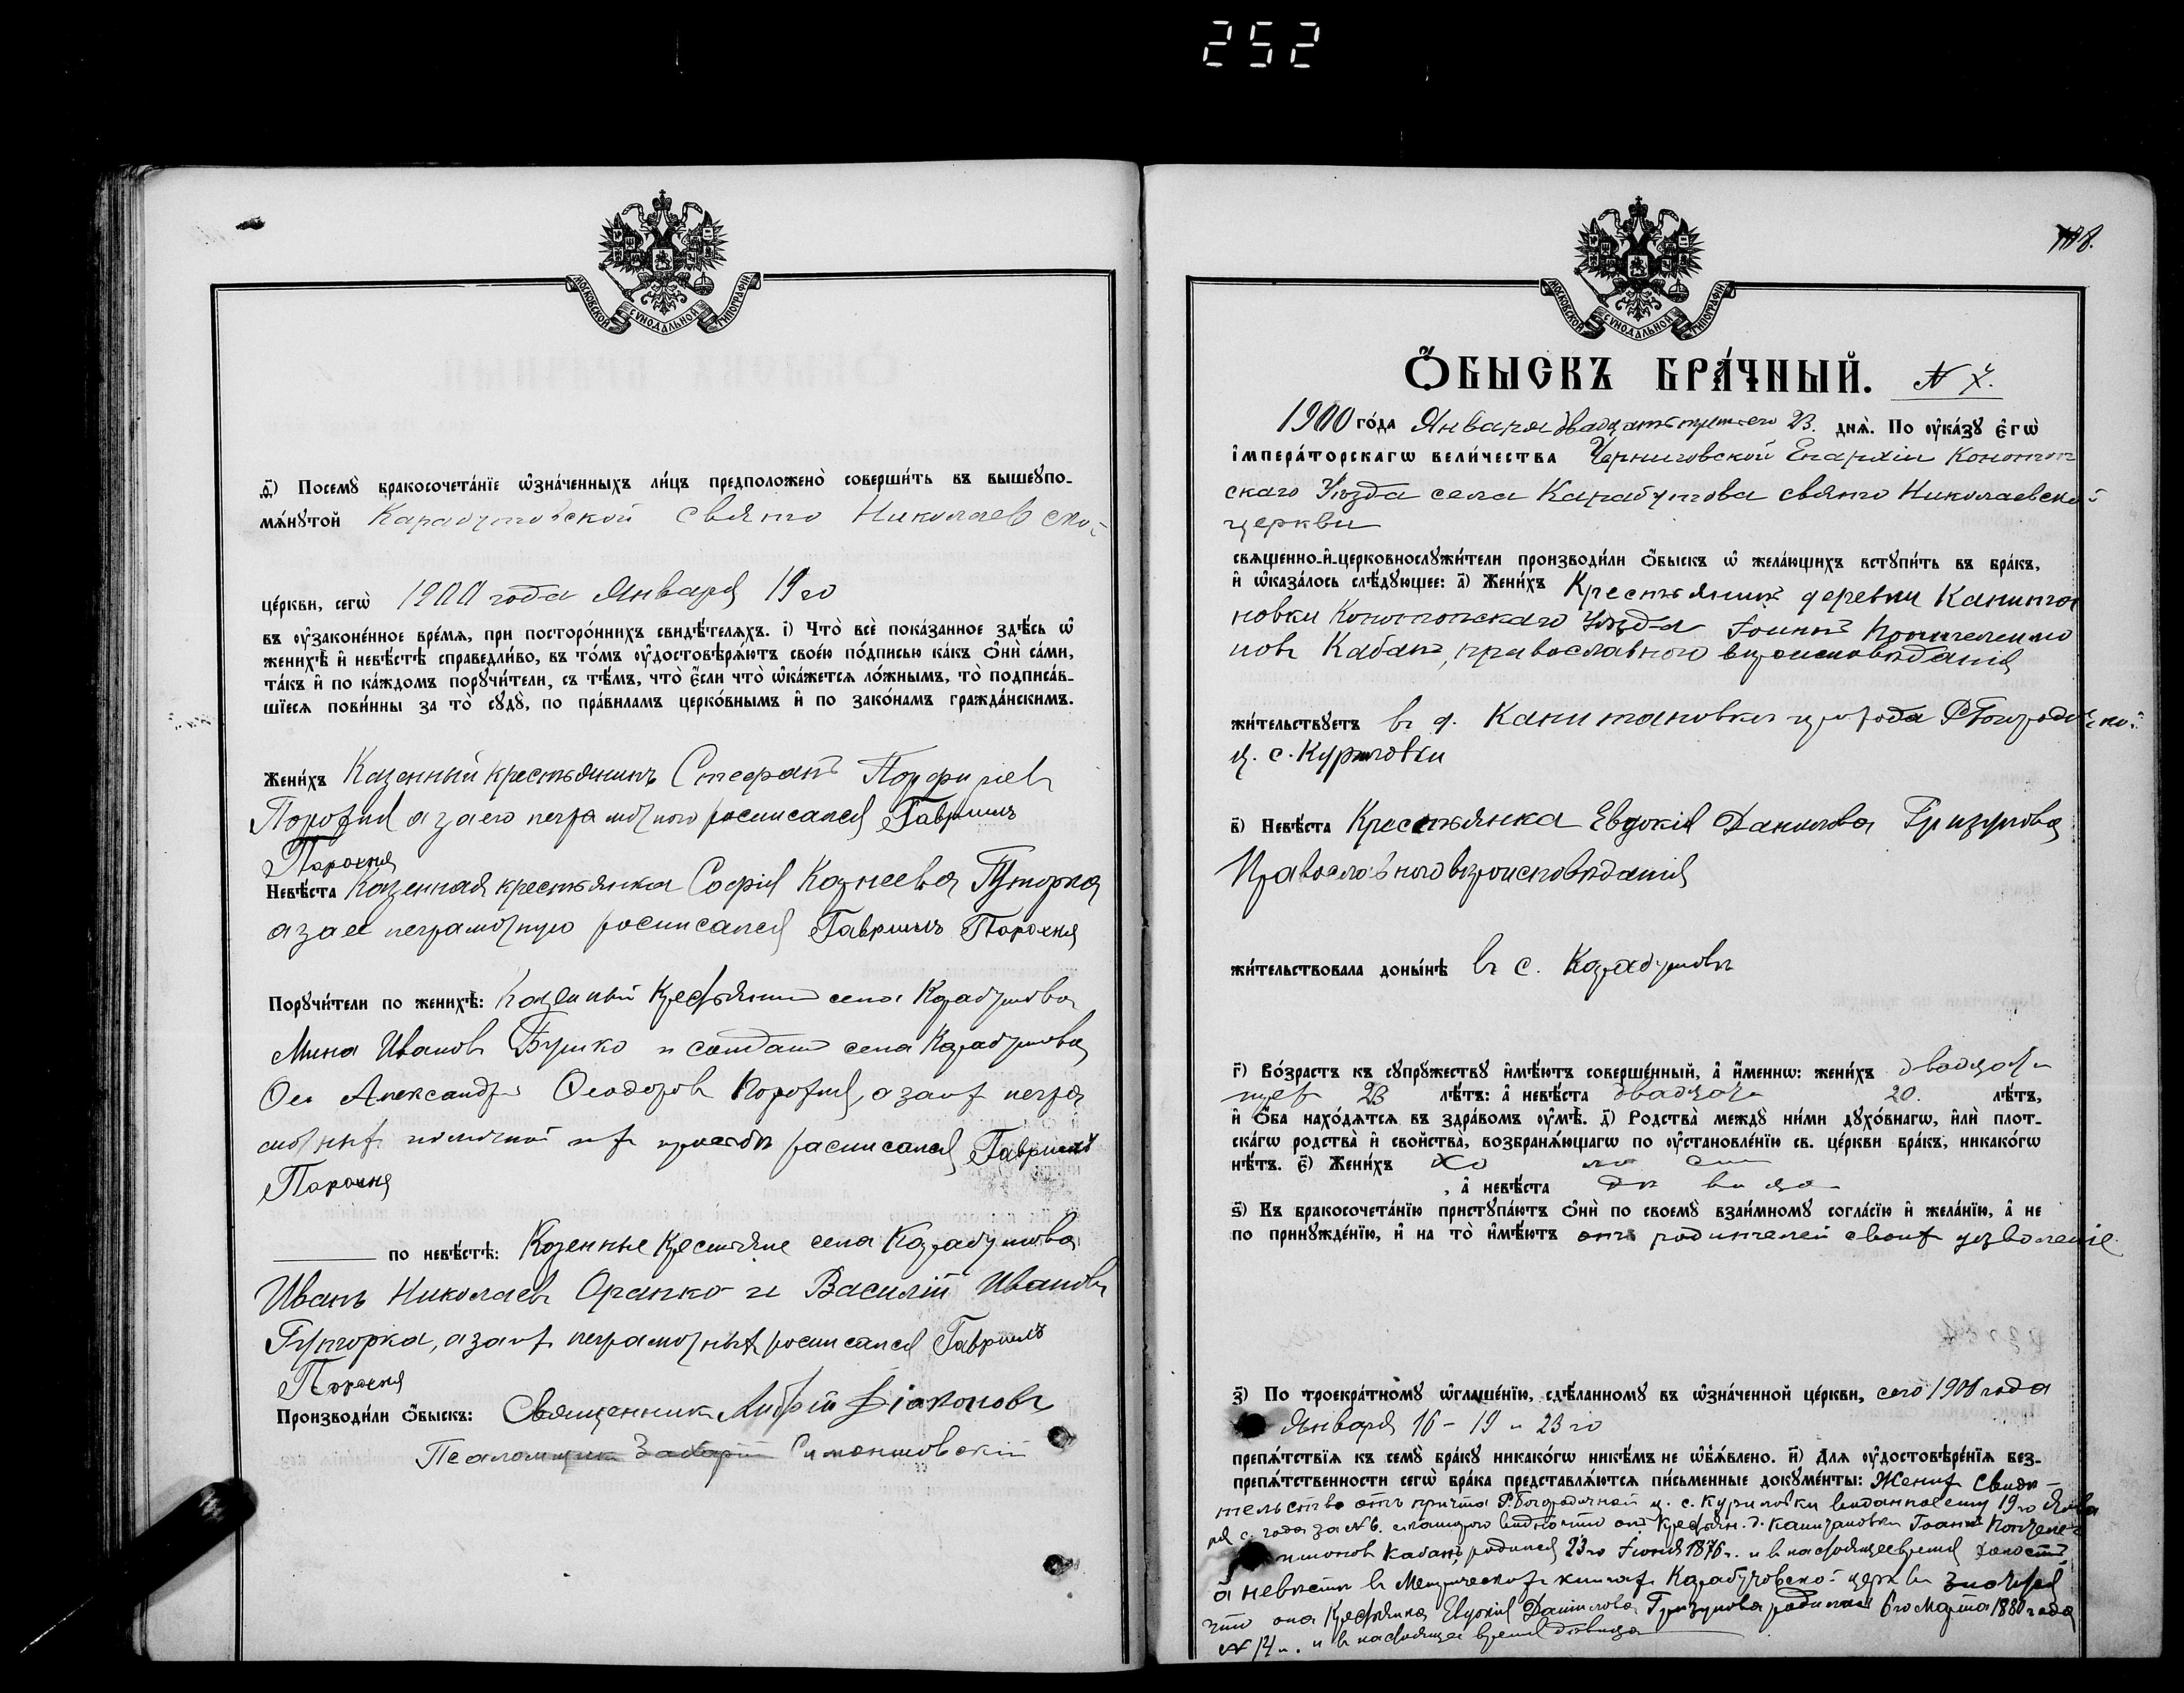 252
МОСКОВСКОЙ СУНОДАЛЬНОЙ ТИПОГРАФІИ
ѳ҃) Посемꙋ̀ бракосочета́нїе ѡ҆зна́ченныхъ ли́цъ предположено̀ соверши́ть въ вышеꙋпо-
мѧ́нꙋтой Карабутовской Свято Николаевской
це́ркви, сегѡ̀ 1900 года Января 19го
въ ᲂу҆законе́нное вре́мѧ, при посторо́ннихъ свидѣ́телѧхъ. і҃) Что̀ всѐ пока́занное здѣ́сь ѡ҆
женихѣ̀ и҆ невѣ́стѣ справедли́во, въ то́мъ ᲂу҆достовѣрѧ́ютъ свое́ю по́дписью ка́къ ѻ҆нѝ са́ми,
та́къ и҆ по ка́ждомъ порꙋчи́тели, съ тѣ́мъ, что̀ є҆́сли что̀ ѡ҆ка́жется ло́жнымъ, то̀ подписа́в-
шїеся пови́нны за то̀ сꙋдꙋ̀, по пра́виламъ церко́внымъ и҆ по зако́намъ гражда́нскимъ.
Жени́хъ Казенный крестьянинъ Стефанъ Порфиріев
Порохня а за его неграмотного росписался Гавриилъ
Порохня
Невѣ́ста Казенная крестьянка Софія Корнеева Гуторка
а за ее неграмотную росписался Гавриилъ Порохня
Порꙋчи́тели по женихѣ̀: Казенный Крестьянин села Карабутова
Мина Иванов Бушко и солдат села Карабутова
Александръ Феодоров Порохня, а за их негра
мотных по личной их просьбѣ расписался Гавриилъ
Порохня
по невѣ́стѣ: Казенные Крестьяне села Карабутова
Иванъ Николаевъ Оранко и Василій Ивановъ
Гуторка, а за их неграмотных росписался Гавриилъ
Порохня
Производи́ли ѻ҆́быскъ: Священникъ Андрій Діаконовъ
Псаломщик Захарій Симонтовскій
118.
МОСКОВСКОЙ СУНОДАЛЬНОЙ ТИПОГРАФІИ
Ѻ҆́БЫСКЪ БРА́ЧНЫЙ. № 7.
1900 го́да Января двадцать третьего 23. днѧ̀. По ᲂу҆ка́зꙋ є҆гѡ̀
і҆мпера́торскагѡ вели́чества Черниговской Епархіи Конотоп
скаго Уѣзда села Карабутова свято Николаевской
церкви
свѧщенно-и҆-церковнослꙋжи́тели производи́ли ѻ҆́быскъ ѡ҆ жела́ющихъ встꙋпи́ть въ бра́къ,
и҆ ѡ҆каза́лось слѣ́дꙋющее: а҃) Жени́хъ Крестьянин деревни Капита
новки Конотопского Уѣзда Іоаннъ Пантелеимо
нов Кабанъ, православного вѣроисповѣданія
жи́тельствꙋетъ в д. Капитановки прихода Р Богородичной
ц. с. Куриловки
в҃) Невѣ́ста Крестьянка Евдокія Данилова Гризунова
Православного вѣроисповѣданія
жи́тельствовала доны́нѣ в с. Карабутовѣ
г҃) Во́зрастъ къ сꙋпрꙋ́жествꙋ и҆мѣ́ютъ соверше́нный, а҆ и҆́меннѡ: жени́хъ двадцать
трех 23 лѣ́тъ: а҆ невѣ́ста двадцать 20. лѣ́тъ,
и҆ ѻ҆́ба нахо́дятся въ здра́вомъ ᲂу҆мѣ̀. д҃) Родства̀ междꙋ̀ ни́ми дꙋхо́внагѡ, и҆лѝ плот-
ска́гѡ родства̀ и҆ свойства̀, возбранѧ́ющагѡ по ᲂу҆становле́нїю св. це́ркви бра́къ, никако́гѡ
нѣ́тъ. є҃) Жени́хъ хо ло ст
, а҆ невѣ́ста дѣ ви ца
ѕ҃) Въ бракосочета́нїю пристꙋпа́ютъ ѻ҆нѝ по своемꙋ̀ взаи́мномꙋ согла́сїю и҆ жела́нїю, а҆ не
по принꙋжде́нїю, и҆ на то̀ и҆мѣ́ютъ отъ родителей своих дозволеніе
з҃) По троекра́тномꙋ ѡ҆глаше́нїю, сдѣ́ланномꙋ въ ѡ҆зна́ченной це́ркви, сего 1900 года
Января 16 - 19 и 23го
препѧ́тствїѧ къ семꙋ̀ бра́кꙋ никако́гѡ никѣ́мъ не ѡ҆бъѧ́влено. и҃) Длѧ ᲂу҆достовѣре́нїѧ без-
препѧ́тственности сегѡ̀ бра́ка представлѧ́ются пи́сьменные докꙋме́нты: Жених Свидѣ
тельство отъ причта Р Богородичной ц. с. Куриловки виданное ему 19го Янва
ря с. года за № 6. с которого видно что он Крестьян. д. Капитановки Іоаннъ Пантеле
имонов Кабанъ, родился 23го Іюня 1876 г. и в настоящее время холост
а невѣсты в Метрических книгах Карабутовской церкви значится
что она Крестьянка Евдокія Данилова Гризунова родилась 6го Марта 1880 года
№ 14 и. и в настоящее время дѣвица